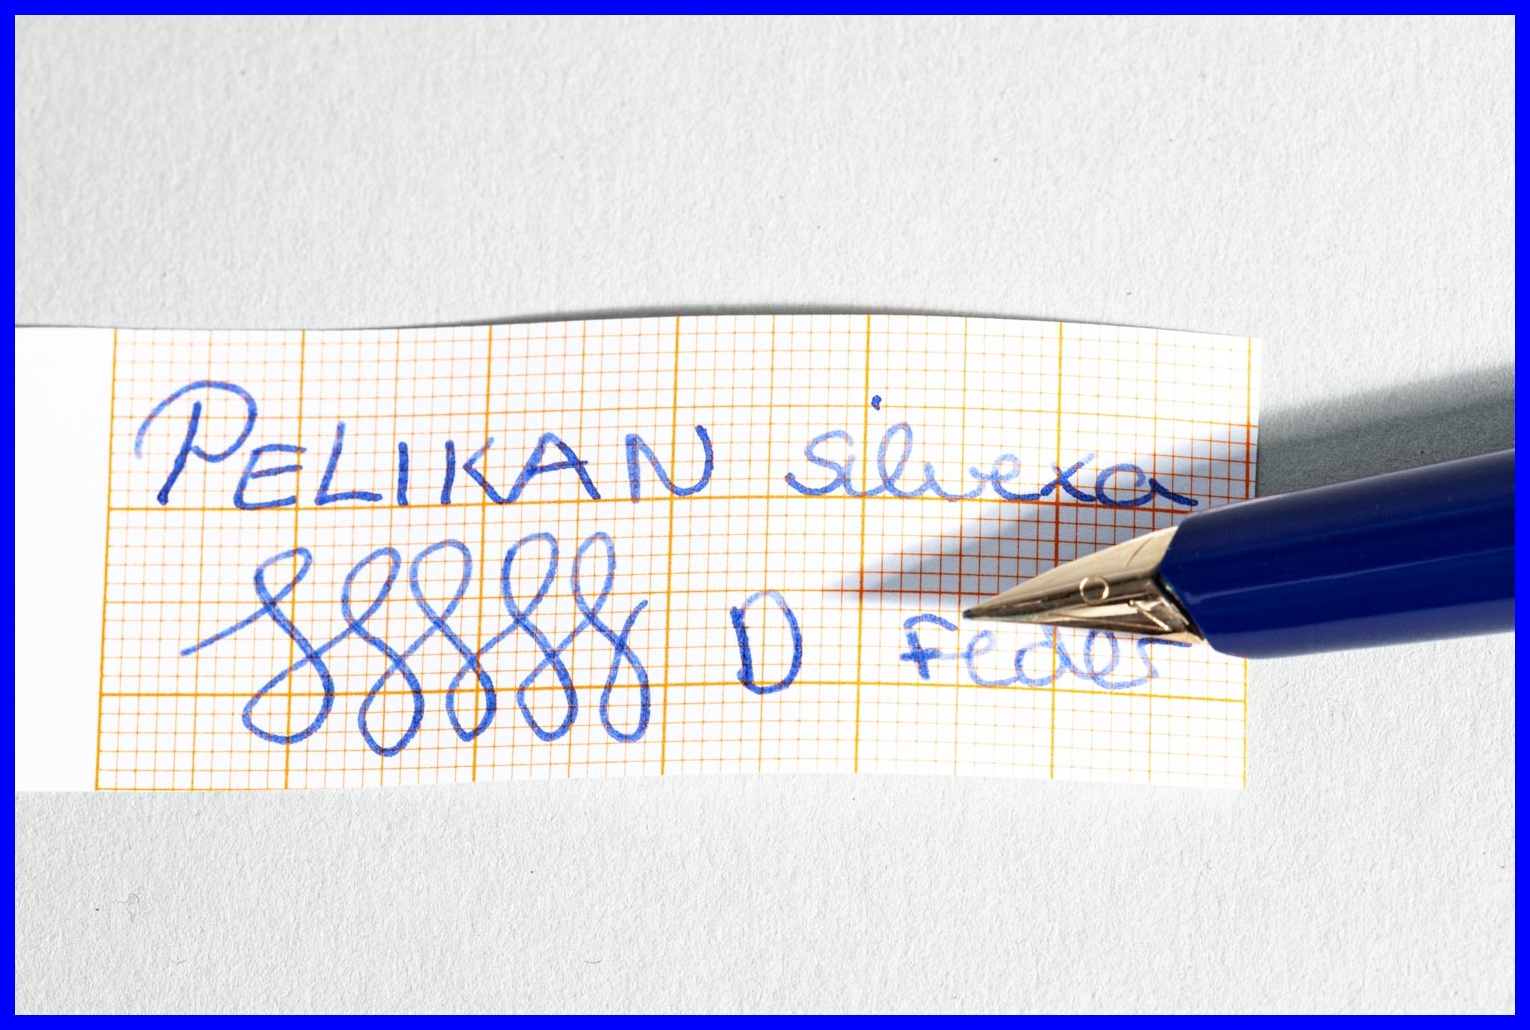 PELIKAN silvexa
D Feder